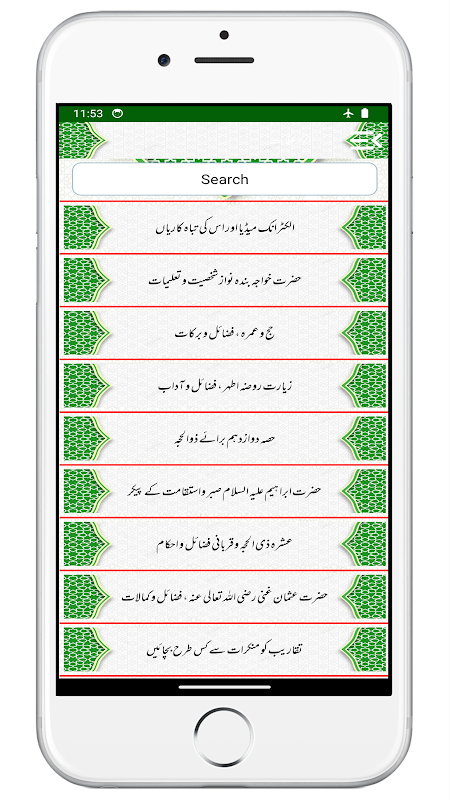 11:53
Search
الکٹرانک میڈیا اور اس کی تباہ کاریاں
حضرت خواجہ بندہ نواز شخصیت و تعلیمات
حج و عمرہ ، فضائل و برکات
زیارت روضۂ اطہر ، فضائل و آداب
حصہ دوازدہم برائے ذوالحجہ
حضرت ابراہیم علیہ السلام صبر واستقامت کے پیکر
عشرہ ذی الحجہ و قربانی فضائل و احکام
حضرت عثمان غنی رضی اللہ تعالی عنہ ، فضائل و کمالات
تقاریب کو منکرات سے کس طرح بچائیں